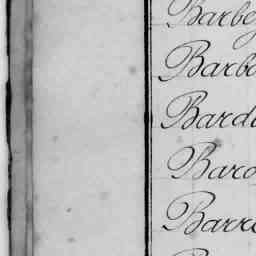 Barbe
Barbo
Barde
Baro
Barre